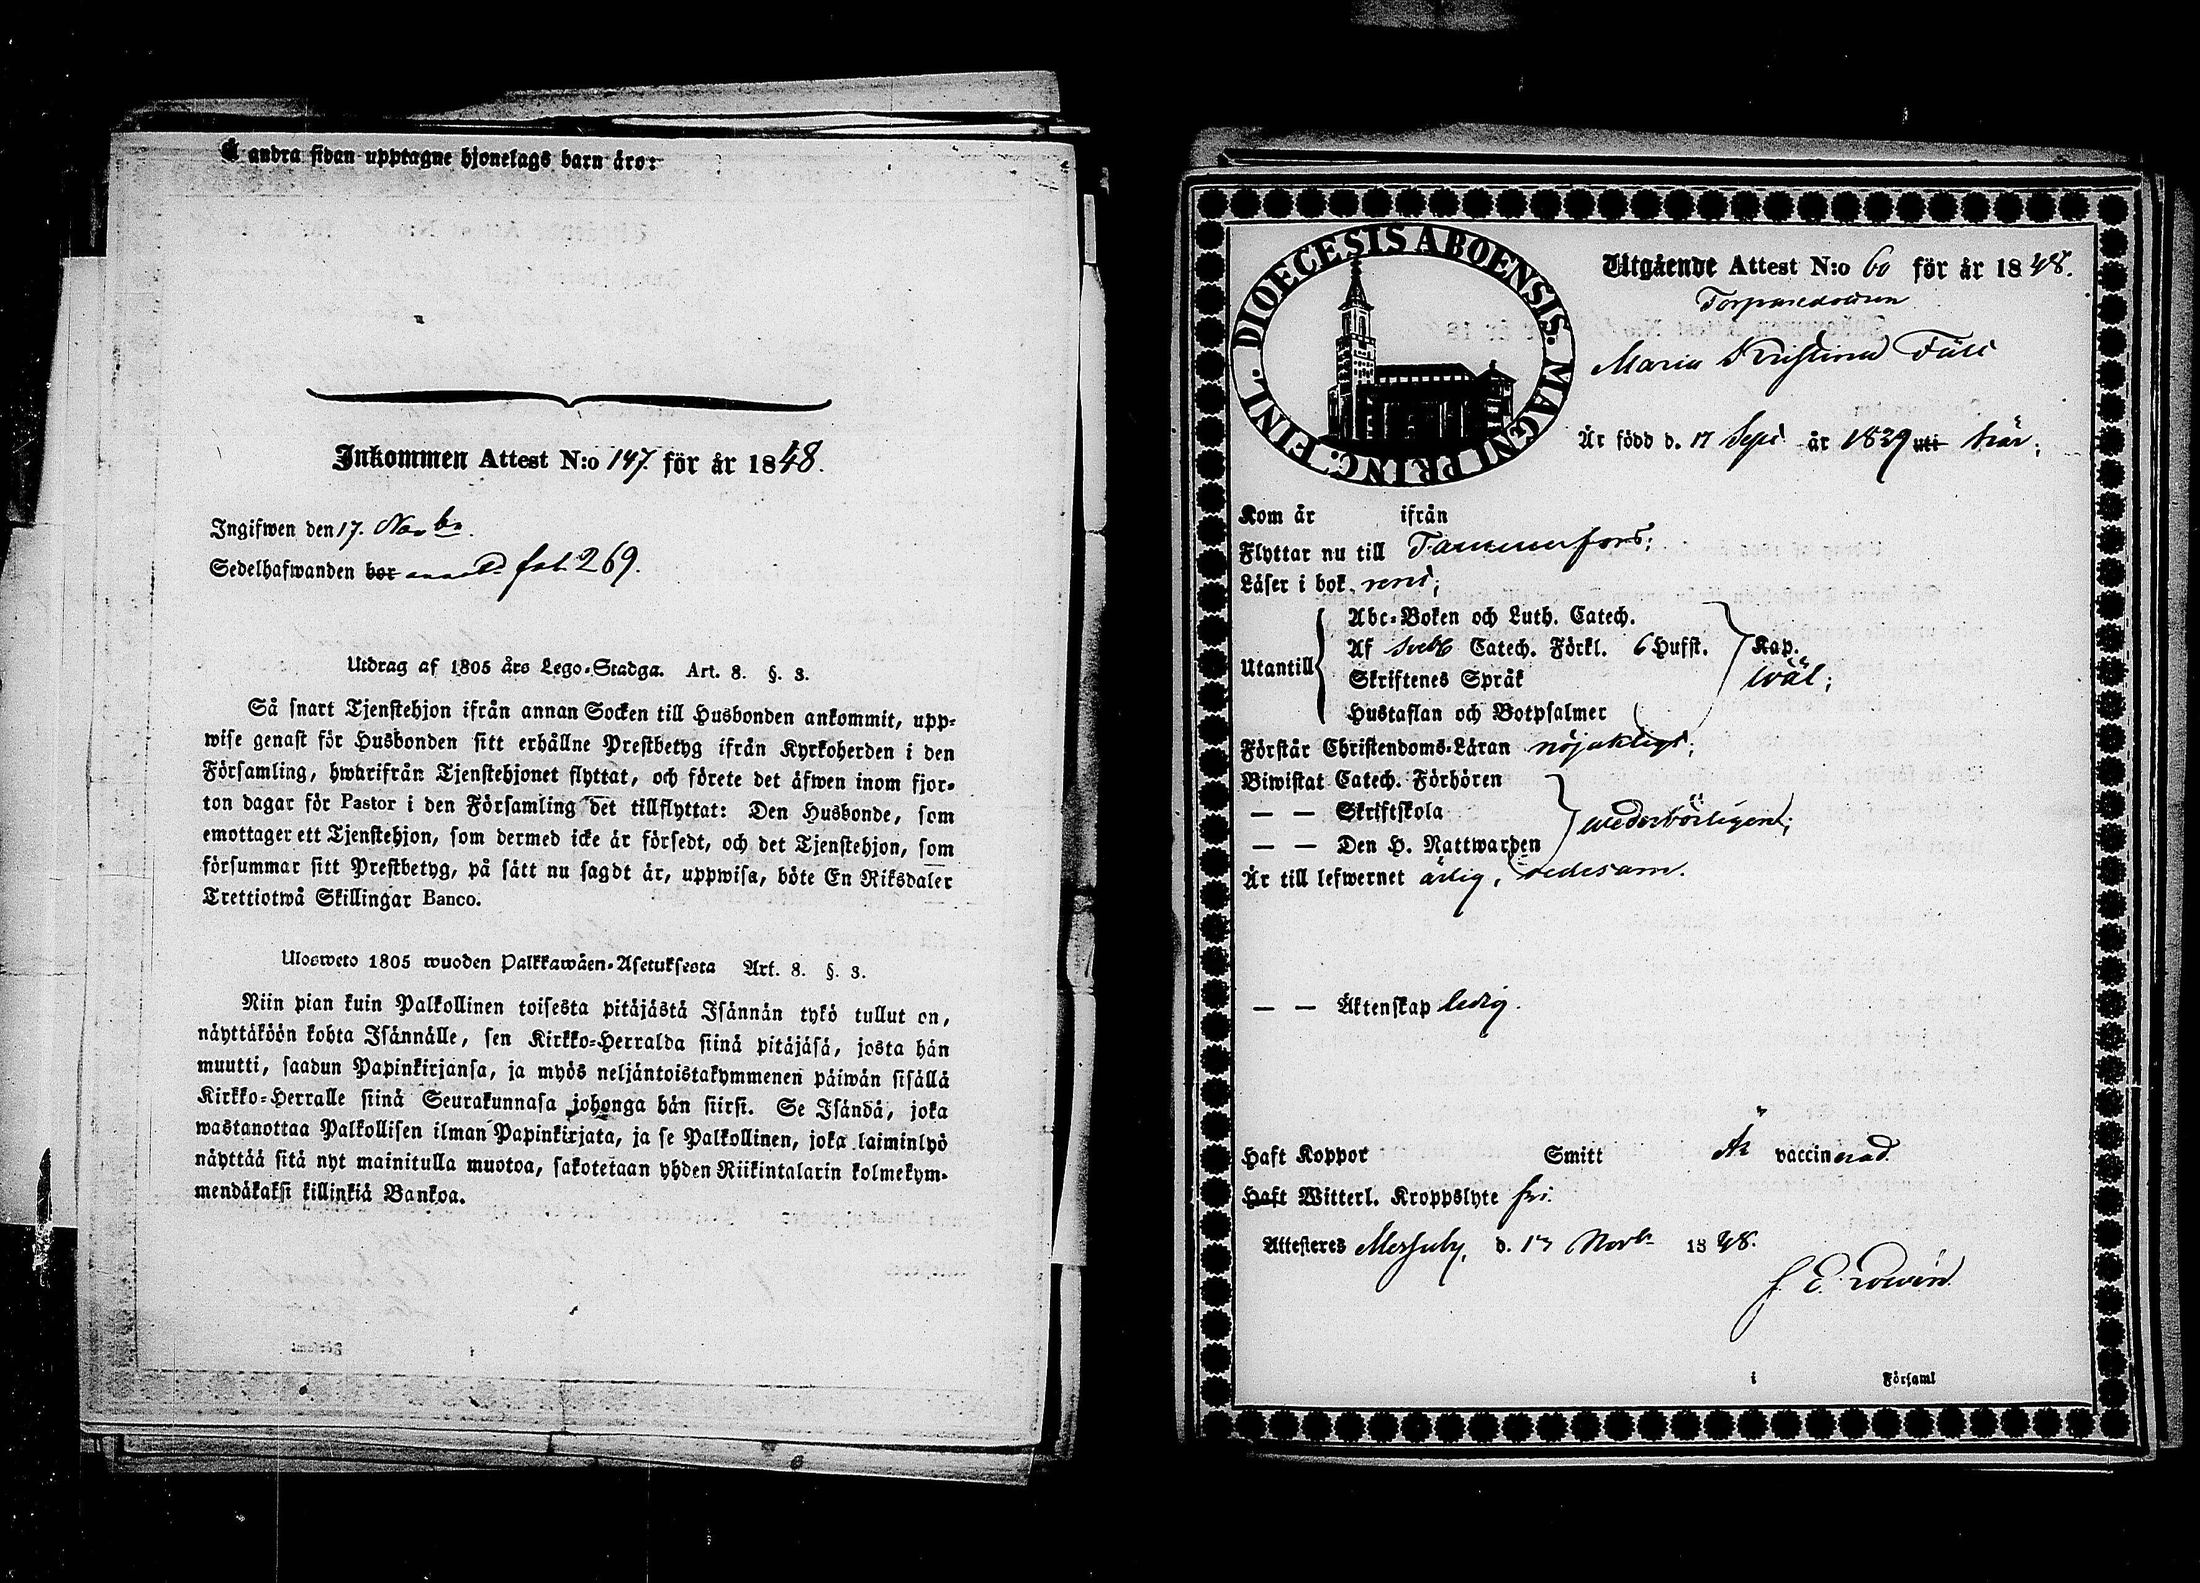 Å andra sidan upptagne hjonelags barn äro:
Inkommen Attest N:o 147. för år 1848.
Ingifwen den 17. Novbr.
Sedelhafwanden bor fol. 269.
Utdrag af 1805 års Lego-Stadga. Art. 8. §. 3.
Så snart Tjenstehjon ifrån annan Socken till Husbonden ankommit, upp-
wise genast för Husbonden sitt erhållne Prestbetyg ifrån Kyrkoherden i den
Församling, hwarifrån Tjenstehjonet flyttat, och förete det äfwen inom fjor-
ton dagar för Pastor i den Församling det tillflyttat: Den Husbonde, som
emottager ett Tjenstehjon, som dermed icke är försedt, och det Tjenstehjon, som
försummar sitt Prestbetyg, på sätt nu sagdt är, uppwisa, böte En Riksdaler
Trettiotwå Skillingar Banco.
Ulosweto 1805 wuoden Palkkawäen-Asetuksesta Art. 8. §. 3.
Niin pian kuin Palkollinen toisesta pitäjästä Isännän tykö tullut on,
näyttäköön kohta Isännälle, sen Kirkko-Herralda siinä pitäjäsä, josta hän
muutti, saadun Papinkirjansa, ja myös neljäntoistakymmenen päiwän sisällä
Kirkko-Herralle siinä Seurakunnasa johonga hän siirsi. Se Isändä, joka
wastanottaa Palkollisen ilman Papinkirjata, ja se Palkollinen, joka laiminlyö
näyttää sitä nyt mainitulla muotoa, sakotetaan yhden Riikintalarin kolmekym-
mendäkaksi killinkiä Bankoa.
DIOECESIS ABOENSIS. MAGNI PRINC. FINL.
Utgående Attest N:o 60 för år 1848.
Torparedottren
Maria Kristina
Är född d. 17 Sept år 1829 uti här;
Kom år ifrån
Flyttar nu till Tammerfors;
Läser i bok. rent;
Utantill
Abc-Boken och Luth. Catech.
Af Sveb. Catech. Förkl. 6 Hufst. Kap.
Skriftenes Språk wäl;
Hustaflan och Botpsalmer
Förstår Christendoms-Läran nöjaktligt;
Biwistat Catech. Förhören
— — Skriftskola wederbörligen;
— — Den H. Nattwarden
Är till lefwernet ärlig, sedesam.
— — Äktenskap ledig.
Haft Koppor Smitt Är vaccinerad
Haft Witterl. Kroppslyte fri.
Attesteres Messuby, d. 13 Novbr 1848.
i Församl